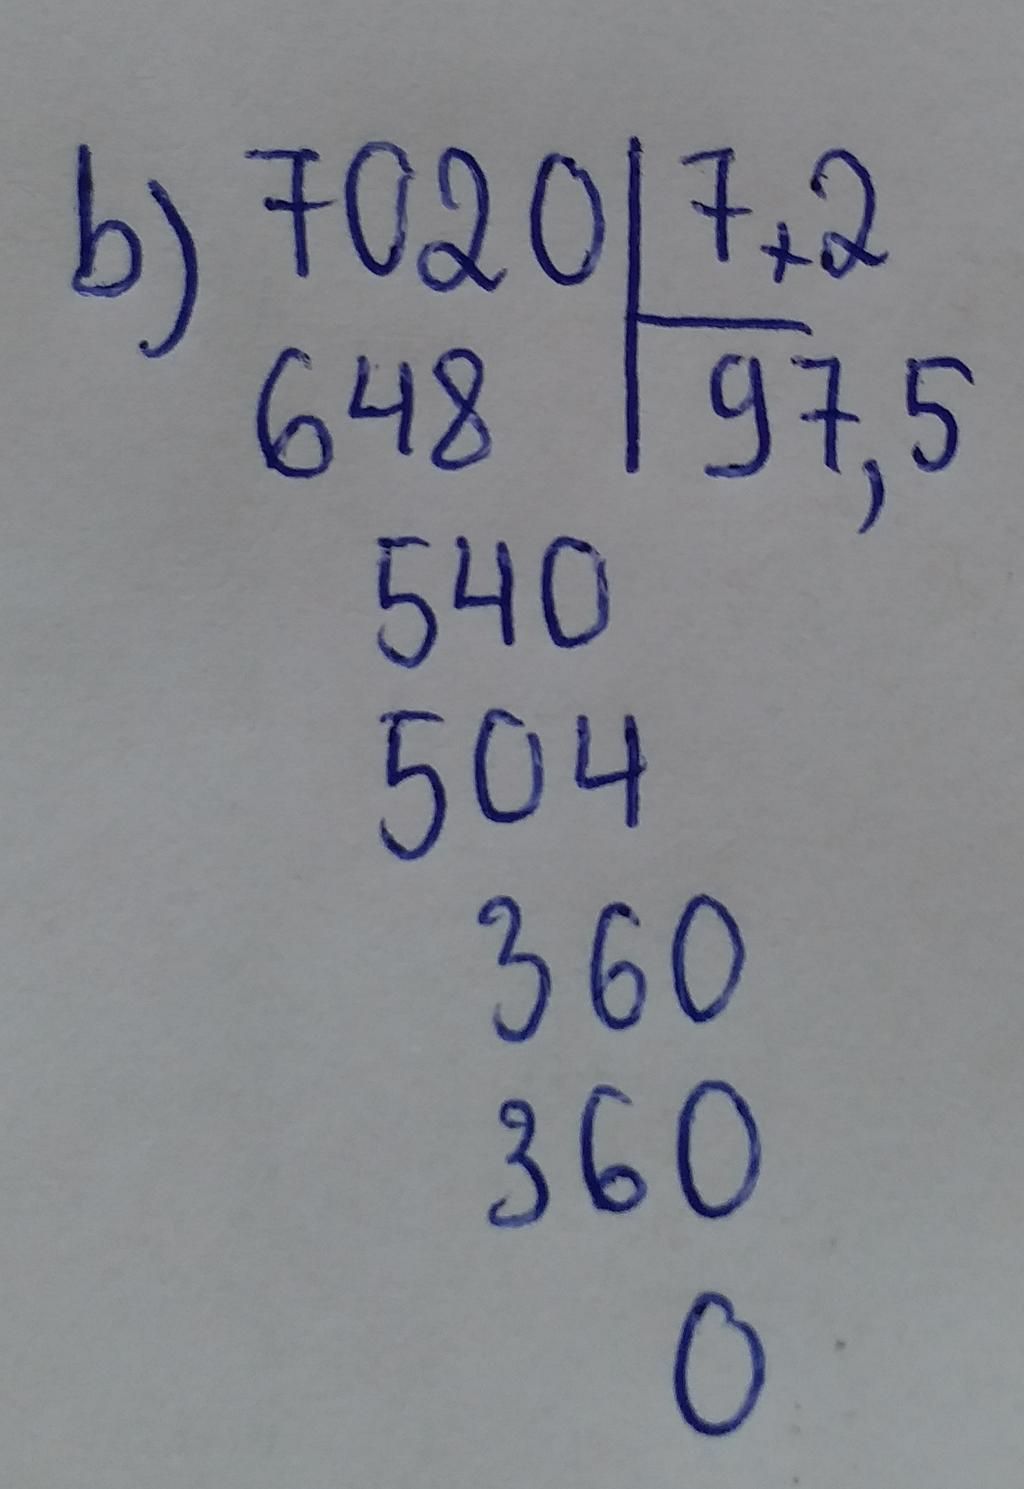 b) 7020 | 7,2
648 | 97,5
540
504
360
360
0